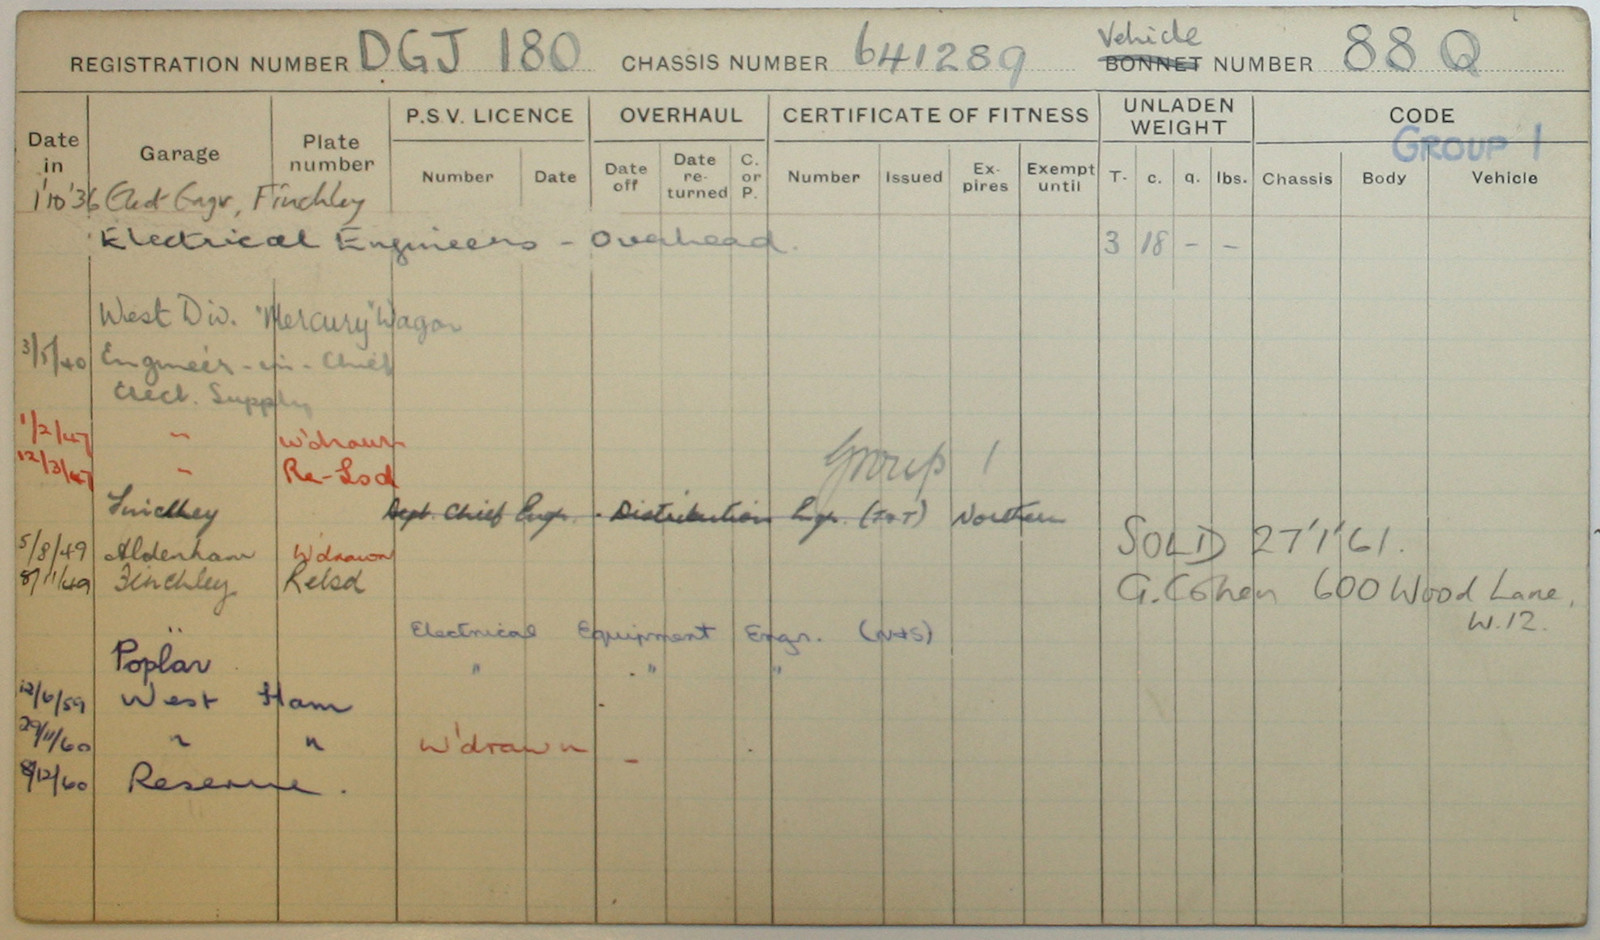 Vehicle
REGISTRATION NUMBER DGJ 180 CHASSIS NUMBER 641289 BONNET NUMBER 88 Q
P.S.V. LICENCE OVERHAUL CERTIFICATE OF FITNESS UNLADEN WEIGHT CODE
GROUP 1
Date in Garage Plate number Number Date Date off Date re-turned C. or P. Number Issued Ex-pires Exempt until T. c. q. lbs. Chassis Body Vehicle
1'10'36 Elect Engr, Finchley
Electrical Engineers - Overhead. 3 18 - -
West Div. "Mercury" Wagon
3/5/40 Engineer-in-Chief
Elect. Supply
1/2/47 " W'drawn
12/3/47 " Re-Lsd
Group 1
Finchley Dept. Chief Engr. - Distribution Engr. Northern
SOLD 27'1'61.
5/8/49 Aldenham W'drawn
8/11/49 Finchley Relsd
G. Cohen 600 Wood Lane,
W.12.
Electrical Equipment Engr. (N+S)
Poplar " " "
12/6/59 West Ham
29/11/60 " " W'drawn
8/12/60 Reserve.